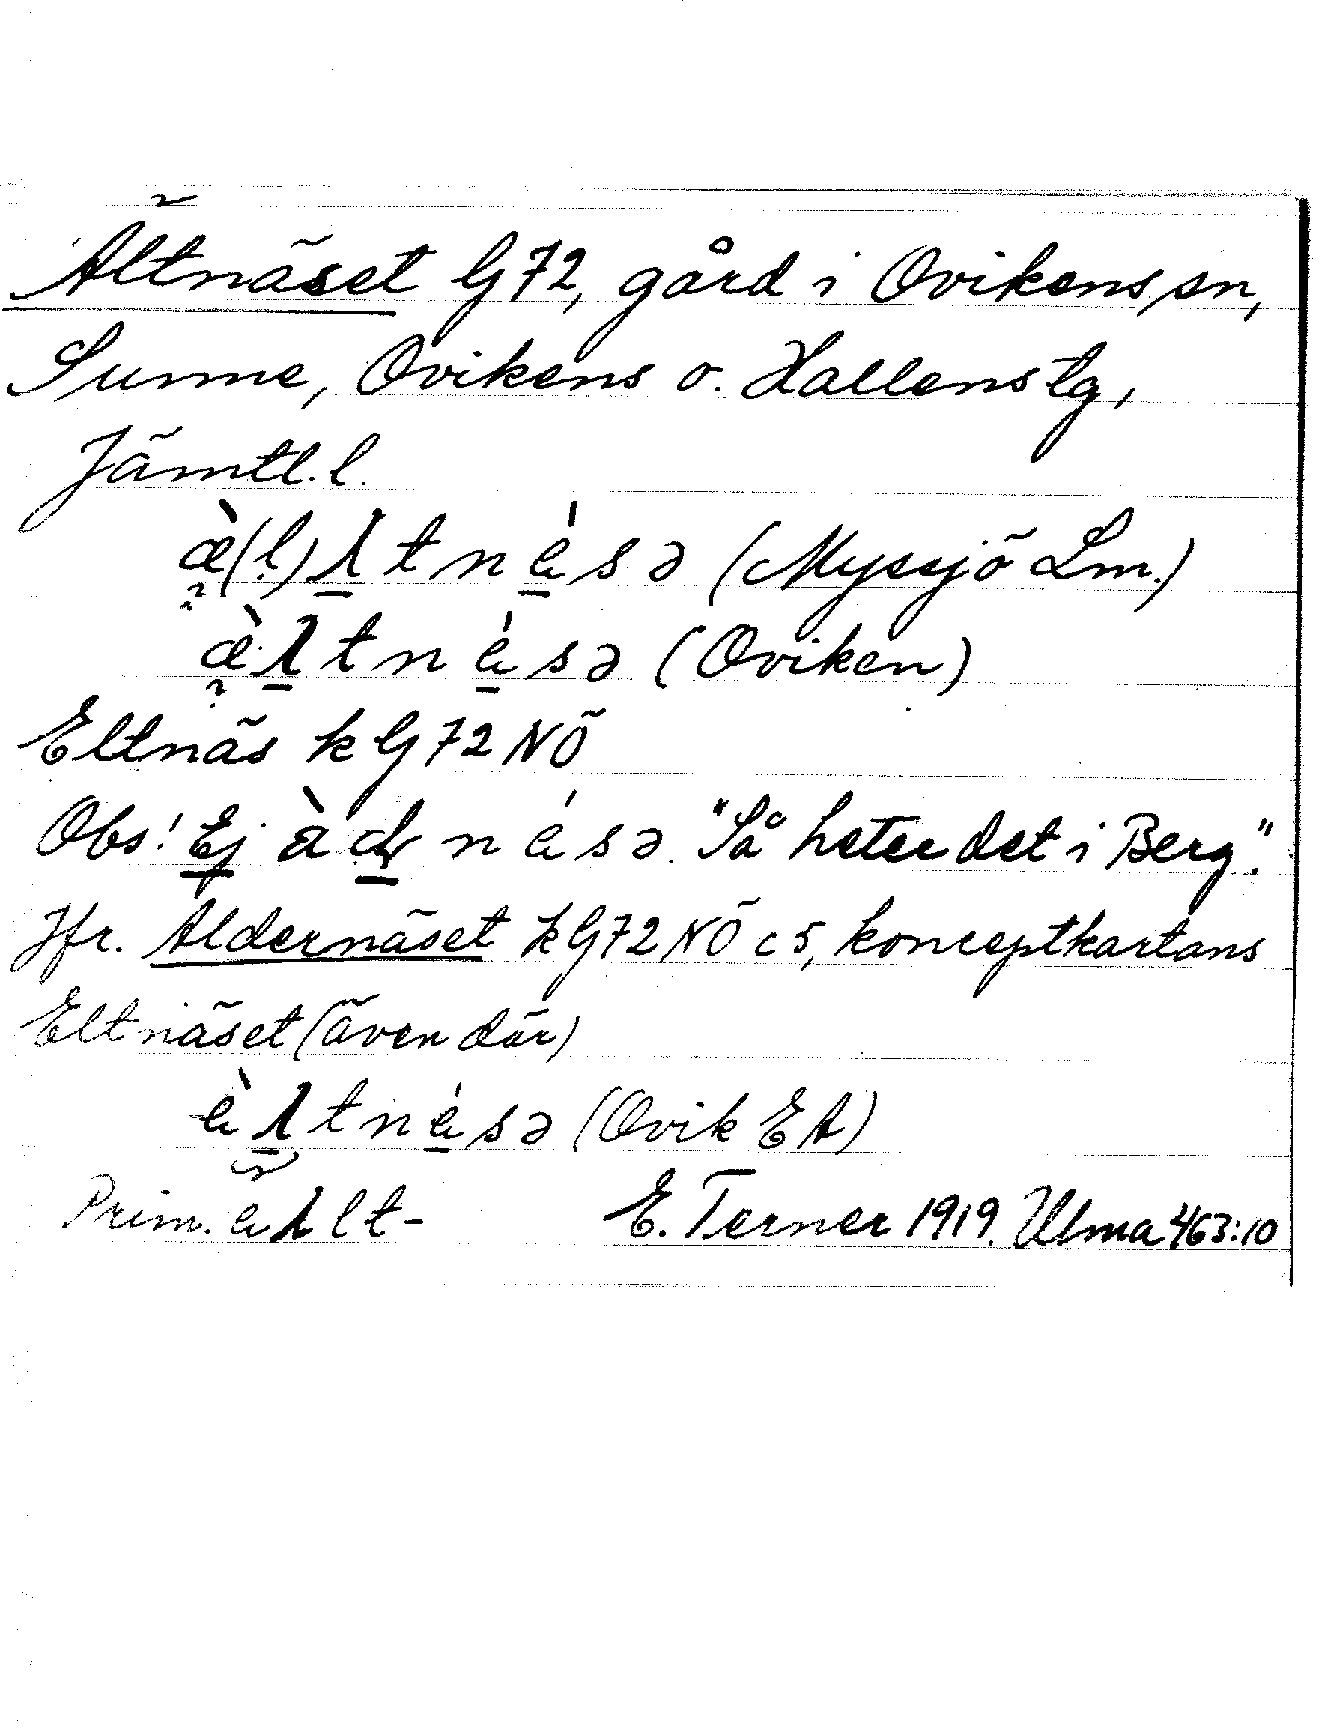 Ältnäset G72, gård i Ovikens sn,
Sunne, Ovikens o. Hallens tg,
Jämtl. l.
æ̀(l)λtnésə (Myssjö Lm.)
æ̀λtnésə (Oviken)
Eltnäs k G72 NÖ
Obs! Ej àɖnésə. "Så heter det i Berg."
Jfr. Aldernäset k G72 NÖ c5, konceptkartans
Eltnäset (även där)
èλtnésə (Ovik EA)
Prim. eλlt- E. Terner 1919. Ulma 463:10